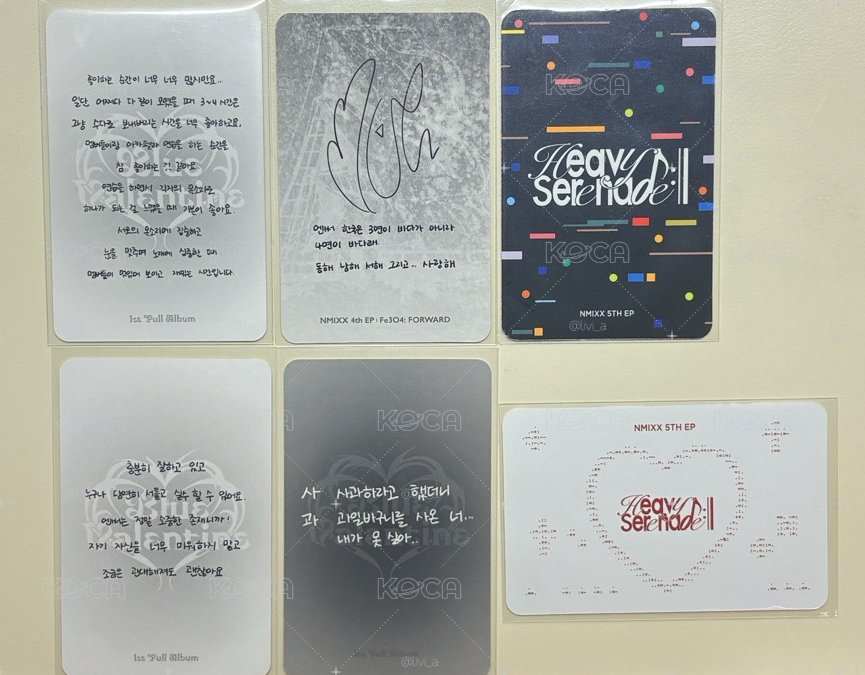 좋아하는 순간이 너무 너무 많지만요..
일단 어쩌다 다 같이 모였을 때 3~4시간은
그냥 수다로 보내버리는 시간을 너무 좋아하고요,
멤버들이랑 아카펠라 연습을 하는 순간을
참 좋아하는 것 같아요
연습을 하면서 각자의 목소리로
하나가 되는 걸 느꼈을 때 기분이 좋아요.
서로의 목소리에 집중하고
눈을 맞추며 노래에 집중할 때
멤버들이 멋있어 보이고 재밌는 시간입니다.
Blue
Valentine
1st Full Album
엔써 한국은 3면이 바다가 아니라
4면이 바다래
동해 남해 서해 그리고.. 사랑해
NMIXX 4th EP | Fe3O4: FORWARD
KOCA
Heavy
Serenade
NMIXX 5TH EP
@livi_a
충분히 잘하고 있고
누구나 당연히 서툴고 실수 할 수 있어요
엔써는 정말 소중한 존재니까!
자기 자신을 너무 미워하지 말고
조금은 관대해져도 괜찮아요
Blue
Valentine
1st Full Album
KOCA
사 사과하라고 했더니
과 과일바구니를 사온 너...
내가 못 살아..
Blue
Valentine
1st Full Album
@livi_a
NMIXX 5TH EP
KOCA
Heavy
Serenade
KOCA